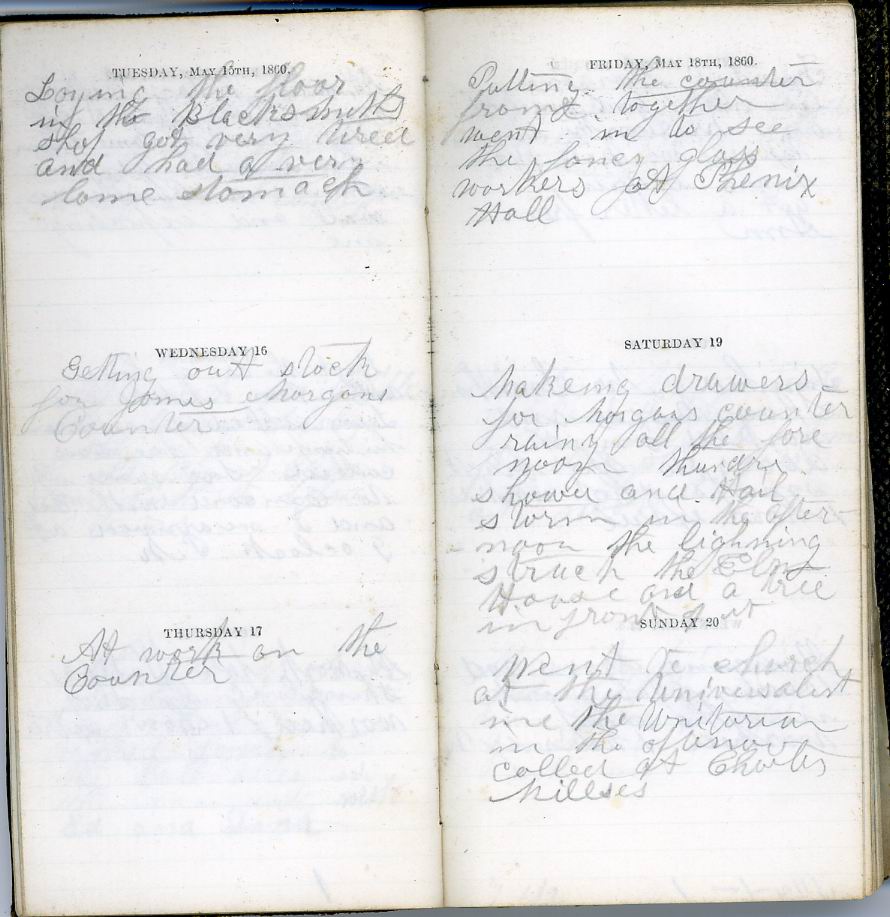 TUESDAY, MAY 15TH, 1860.
Laying the floor
in the Blacksmith
shop got very tired
and had a very
lame stomach
WEDNESDAY 16
Getting out stock
for James Morgans
Counter
THURSDAY 17
At work on the
Counter
FRIDAY, MAY 18TH, 1860.
Putting the counter
front together
went in to see
the fancy glass
workers at Phenix
Hall
SATURDAY 19
Makeing drawers
for Morgans counter
rainy all the fore
noon thundre
shower and Hail
storm in the after
noon the lighning
struck the Elm
House and a tree
in front of it
SUNDAY 20
Went to church
at the Universalist
the Unitarian
in the afternoon
called at Charles
Millses